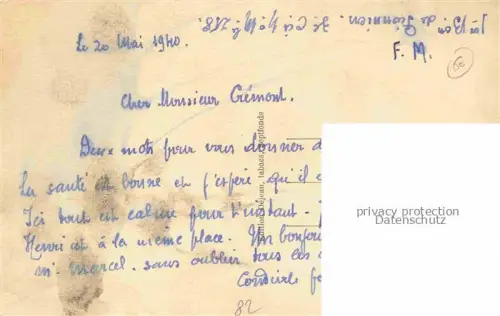 Le 20 Mai 1940.
F. M.
Cher Monsieur Crémont.
Deux mots pour vous donner d
La santé est bonne et j'espère qu'il e
Ici tout est calme pour l'instant -
Henri est à la même place. Un bonjou
m. marcel. sans oublier tous les
Cordiale
82
privacy protection
Datenschutz